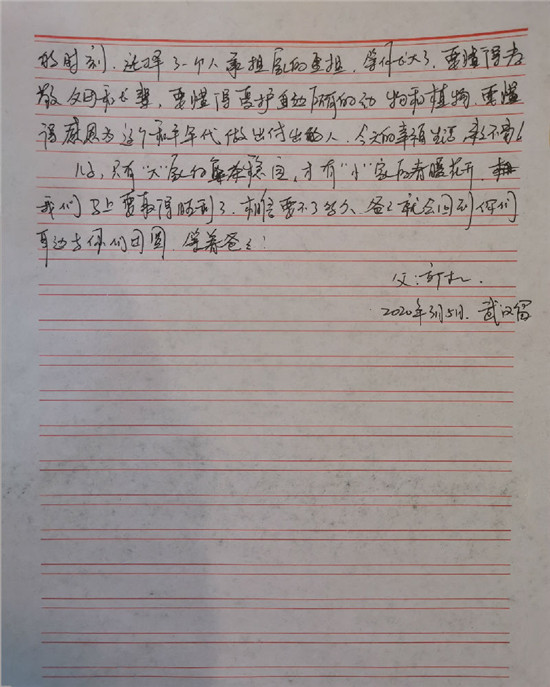 的时刻,选择了一个人承担家的重担。等你长大了,要懂得孝
敬父母和长辈,要懂得爱护身边所有的动物和植物,要懂
得感恩为这个和平年代做出付出的人,今天的幸福生活来之不易!
儿子,只有“大”家的稳固,才有“小”家的春暖花开,
我们马上要取得胜利了,相信要不了多久,爸爸就会回到你们
身边与你们团圆,等着爸爸!
父:
2020年3月5日. 武汉留